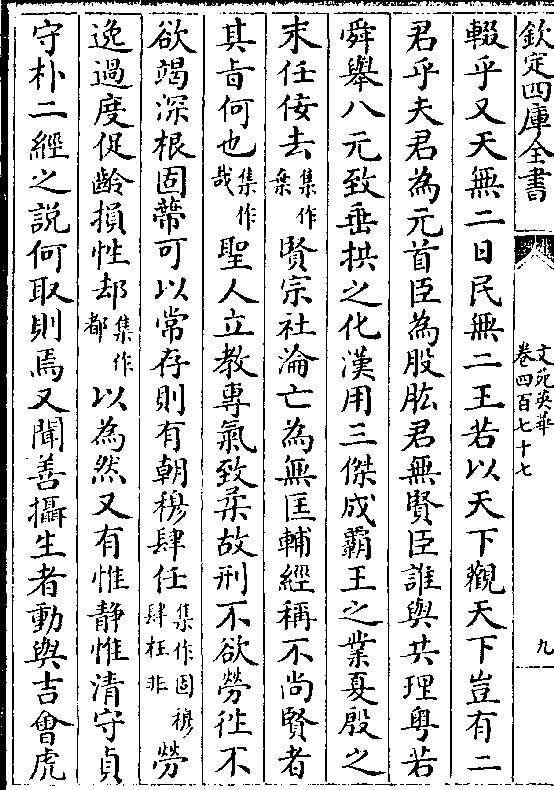 欽定四庫全書
文苑英華
卷四百七十七
九
輟乎又天無二日民無二王若以天下觀天下豈有二
君乎夫君為元首臣為股肱君無賢臣誰與共理粤若
舜舉八元致垂拱之化漢用三傑成霸王之業夏殷之
末任佞去集作棄賢宗社淪亡為無匡輔經稱不尚賢者
其旨何也集作哉聖人立教專氣致柔故刑不欲勞性不
欲竭深根固蔕可以常存則有朝穆肆任集作固穆肆枉非勞
逸過度促齡損性却集作都以為然又有惟静惟清守貞
守朴二經之説何取則焉又聞善攝生者動與吉會虎